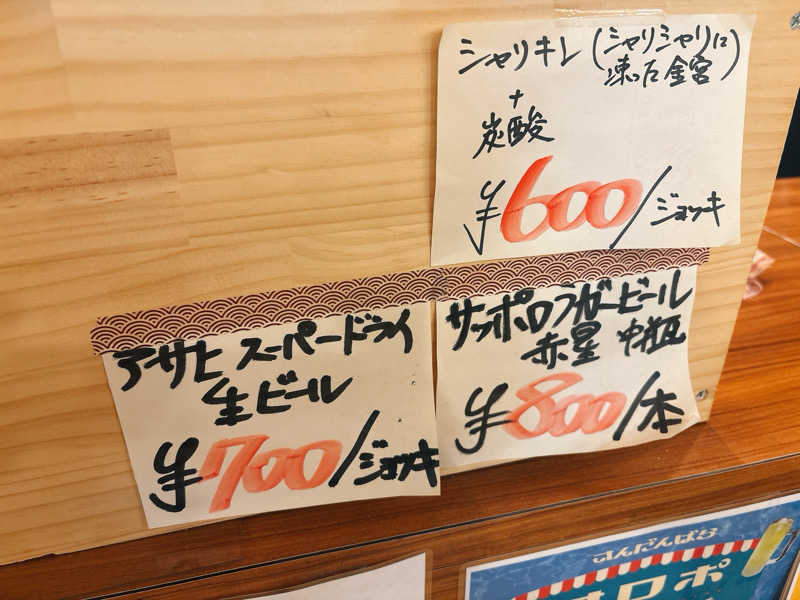 シャリキレ(シャリシャリに
凍った金宮)
+
炭酸
¥600/ジョッキ
アサヒ スーパードライ
生ビール
¥700/ジョッキ
サッポロラガービール
赤星 中瓶
¥800/本
さんだんばら
オロポ